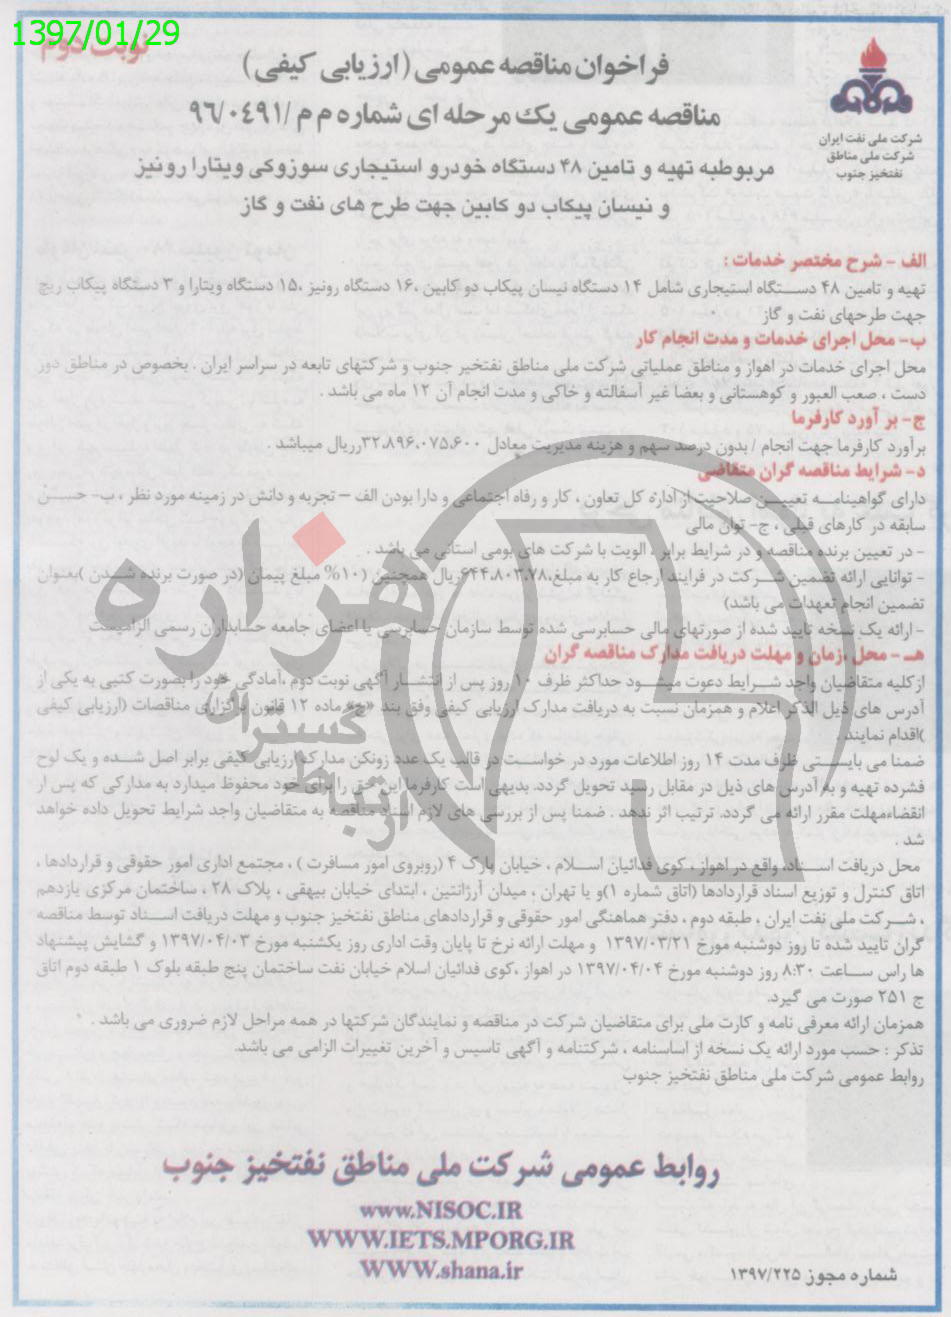 1397/01/29
نوبت دوم
شرکت ملی نفت ایران
شرکت ملی مناطق
نفتخیز جنوب
فراخوان مناقصه عمومی (ارزیابی کیفی)
مناقصه عمومی یک مرحله ای شماره م م /۹۶/۰۴۹۱
مربوطبه تهیه و تامین ۴۸ دستگاه خودرو استیجاری سوزوکی ویتارا رونیز
و نیسان پیکاب دو کابین جهت طرح های نفت و گاز
الف - شرح مختصر خدمات :
تهیه و تامین ۴۸ دستگاه استیجاری شامل ۱۴ دستگاه نیسان پیکاب دو کابین ،۱۶ دستگاه رونیز ،۱۵ دستگاه ویتارا و ۳ دستگاه پیکاب ریچ
جهت طرحهای نفت و گاز
ب- محل اجرای خدمات و مدت انجام کار
محل اجرای خدمات در اهواز و مناطق عملیاتی شرکت ملی مناطق نفتخیر جنوب و شرکتهای تابعه در سراسر ایران . بخصوص در مناطق دور
دست ، صعب العبور و کوهستانی و بعضا غیر آسفالته و خاکی و مدت انجام آن ۱۲ ماه می باشد .
ج- بر آورد کارفرما
برآورد کارفرما جهت انجام / بدون درصد سهم و هزینه مدیریت معادل ۳۲،۸۹۶،۰۷۵،۶۰۰ریال میباشد .
د- شرایط مناقصه گران متقاضی
دارای گواهینامه تعیین صلاحیت از اداره کل تعاون ، کار و رفاه اجتماعی و دارا بودن الف – تجربه و دانش در زمینه مورد نظر ، ب- حسن
سابقه در کارهای قبلی ، ج- توان مالی
- در تعیین برنده مناقصه و در شرایط برابر ، الویت با شرکت های بومی استانی می باشد .
- توانایی ارائه تضمین شرکت در فرایند ارجاع کار به مبلغ ریال همچنین (۱۰% مبلغ پیمان (در صورت برنده شدن )بعنوان
تضمین انجام تعهدات می باشد)
- ارائه یک نسخه تایید شده از صورتهای مالی حسابرسی شده توسط سازمان حسابرسی یا اعضای جامعه حسابداران رسمی الزامیست
هـ - محل ،زمان و مهلت دریافت مدارک مناقصه گران
ازکلیه متقاضیان واجد شرایط دعوت میشود حداکثر ظرف ۱۰ روز پس از انتشار آگهی نوبت دوم ،آمادگی خود را بصورت کتبی به یکی از
آدرس های ذیل الذکر اعلام و همزمان نسبت به دریافت مدارک ارزیابی کیفی وفق بند «ج» ماده ۱۲ قانون برگزاری مناقصات (ارزیابی کیفی
)اقدام نمایند .
ضمنا می بایستی ظرف مدت ۱۴ روز اطلاعات مورد در خواست در قالب یک عدد زونکن مدارک ارزیابی کیفی برابر اصل شده و یک لوح
فشرده تهیه و به آدرس های ذیل در مقابل رسید تحویل گردد. بدیهی است کارفرما این حق را برای خود محفوظ میدارد به مدارکی که پس از
انقضاءمهلت مقرر ارائه می گردد. ترتیب اثر ندهد . ضمنا پس از بررسی های لازم اسناد مناقصه به متقاضیان واجد شرایط تحویل داده خواهد
شد .
محل دریافت اسناد، واقع در اهواز ، کوی فدائیان اسلام ، خیابان پارک ۴ (روبروی امور مسافرت ) ، مجتمع اداری امور حقوقی و قراردادها ،
اتاق کنترل و توزیع اسناد قراردادها (اتاق شماره ۱)و یا تهران ، میدان آرژانتین ، ابتدای خیابان بیهقی ، پلاک ۲۸ ، ساختمان مرکزی یازدهم
، شرکت ملی نفت ایران ، طبقه دوم ، دفتر هماهنگی امور حقوقی و قراردادهای مناطق نفتخیز جنوب و مهلت دریافت اسناد توسط مناقصه
گران تایید شده تا روز دوشنبه مورخ ۱۳۹۷/۰۳/۲۱ و مهلت ارائه نرخ تا پایان وقت اداری روز یکشنبه مورخ ۱۳۹۷/۰۴/۰۳ و گشایش پیشنهاد
ها راس ساعت ۸:۳۰ روز دوشنبه مورخ ۱۳۹۷/۰۴/۰۴ در اهواز ،کوی فدائیان اسلام خیابان نفت ساختمان پنج طبقه بلوک ۱ طبقه دوم اتاق
ج ۲۵۱ صورت می گیرد.
همزمان ارائه معرفی نامه و کارت ملی برای متقاضیان شرکت در مناقصه و نمایندگان شرکتها در همه مراحل لازم ضروری می باشد .
تذکر : حسب مورد ارائه یک نسخه از اساسنامه ، شرکتنامه و آگهی تاسیس و آخرین تغییرات الزامی می باشد.
روابط عمومی شرکت ملی مناطق نفتخیز جنوب
روابط عمومی شرکت ملی مناطق نفتخیز جنوب
www.NISOC.IR
WWW.IETS.MPORG.IR
WWW.shana.ir
شماره مجوز ۱۳۹۷/۲۲۵
هزاره
گستران
ارتباط